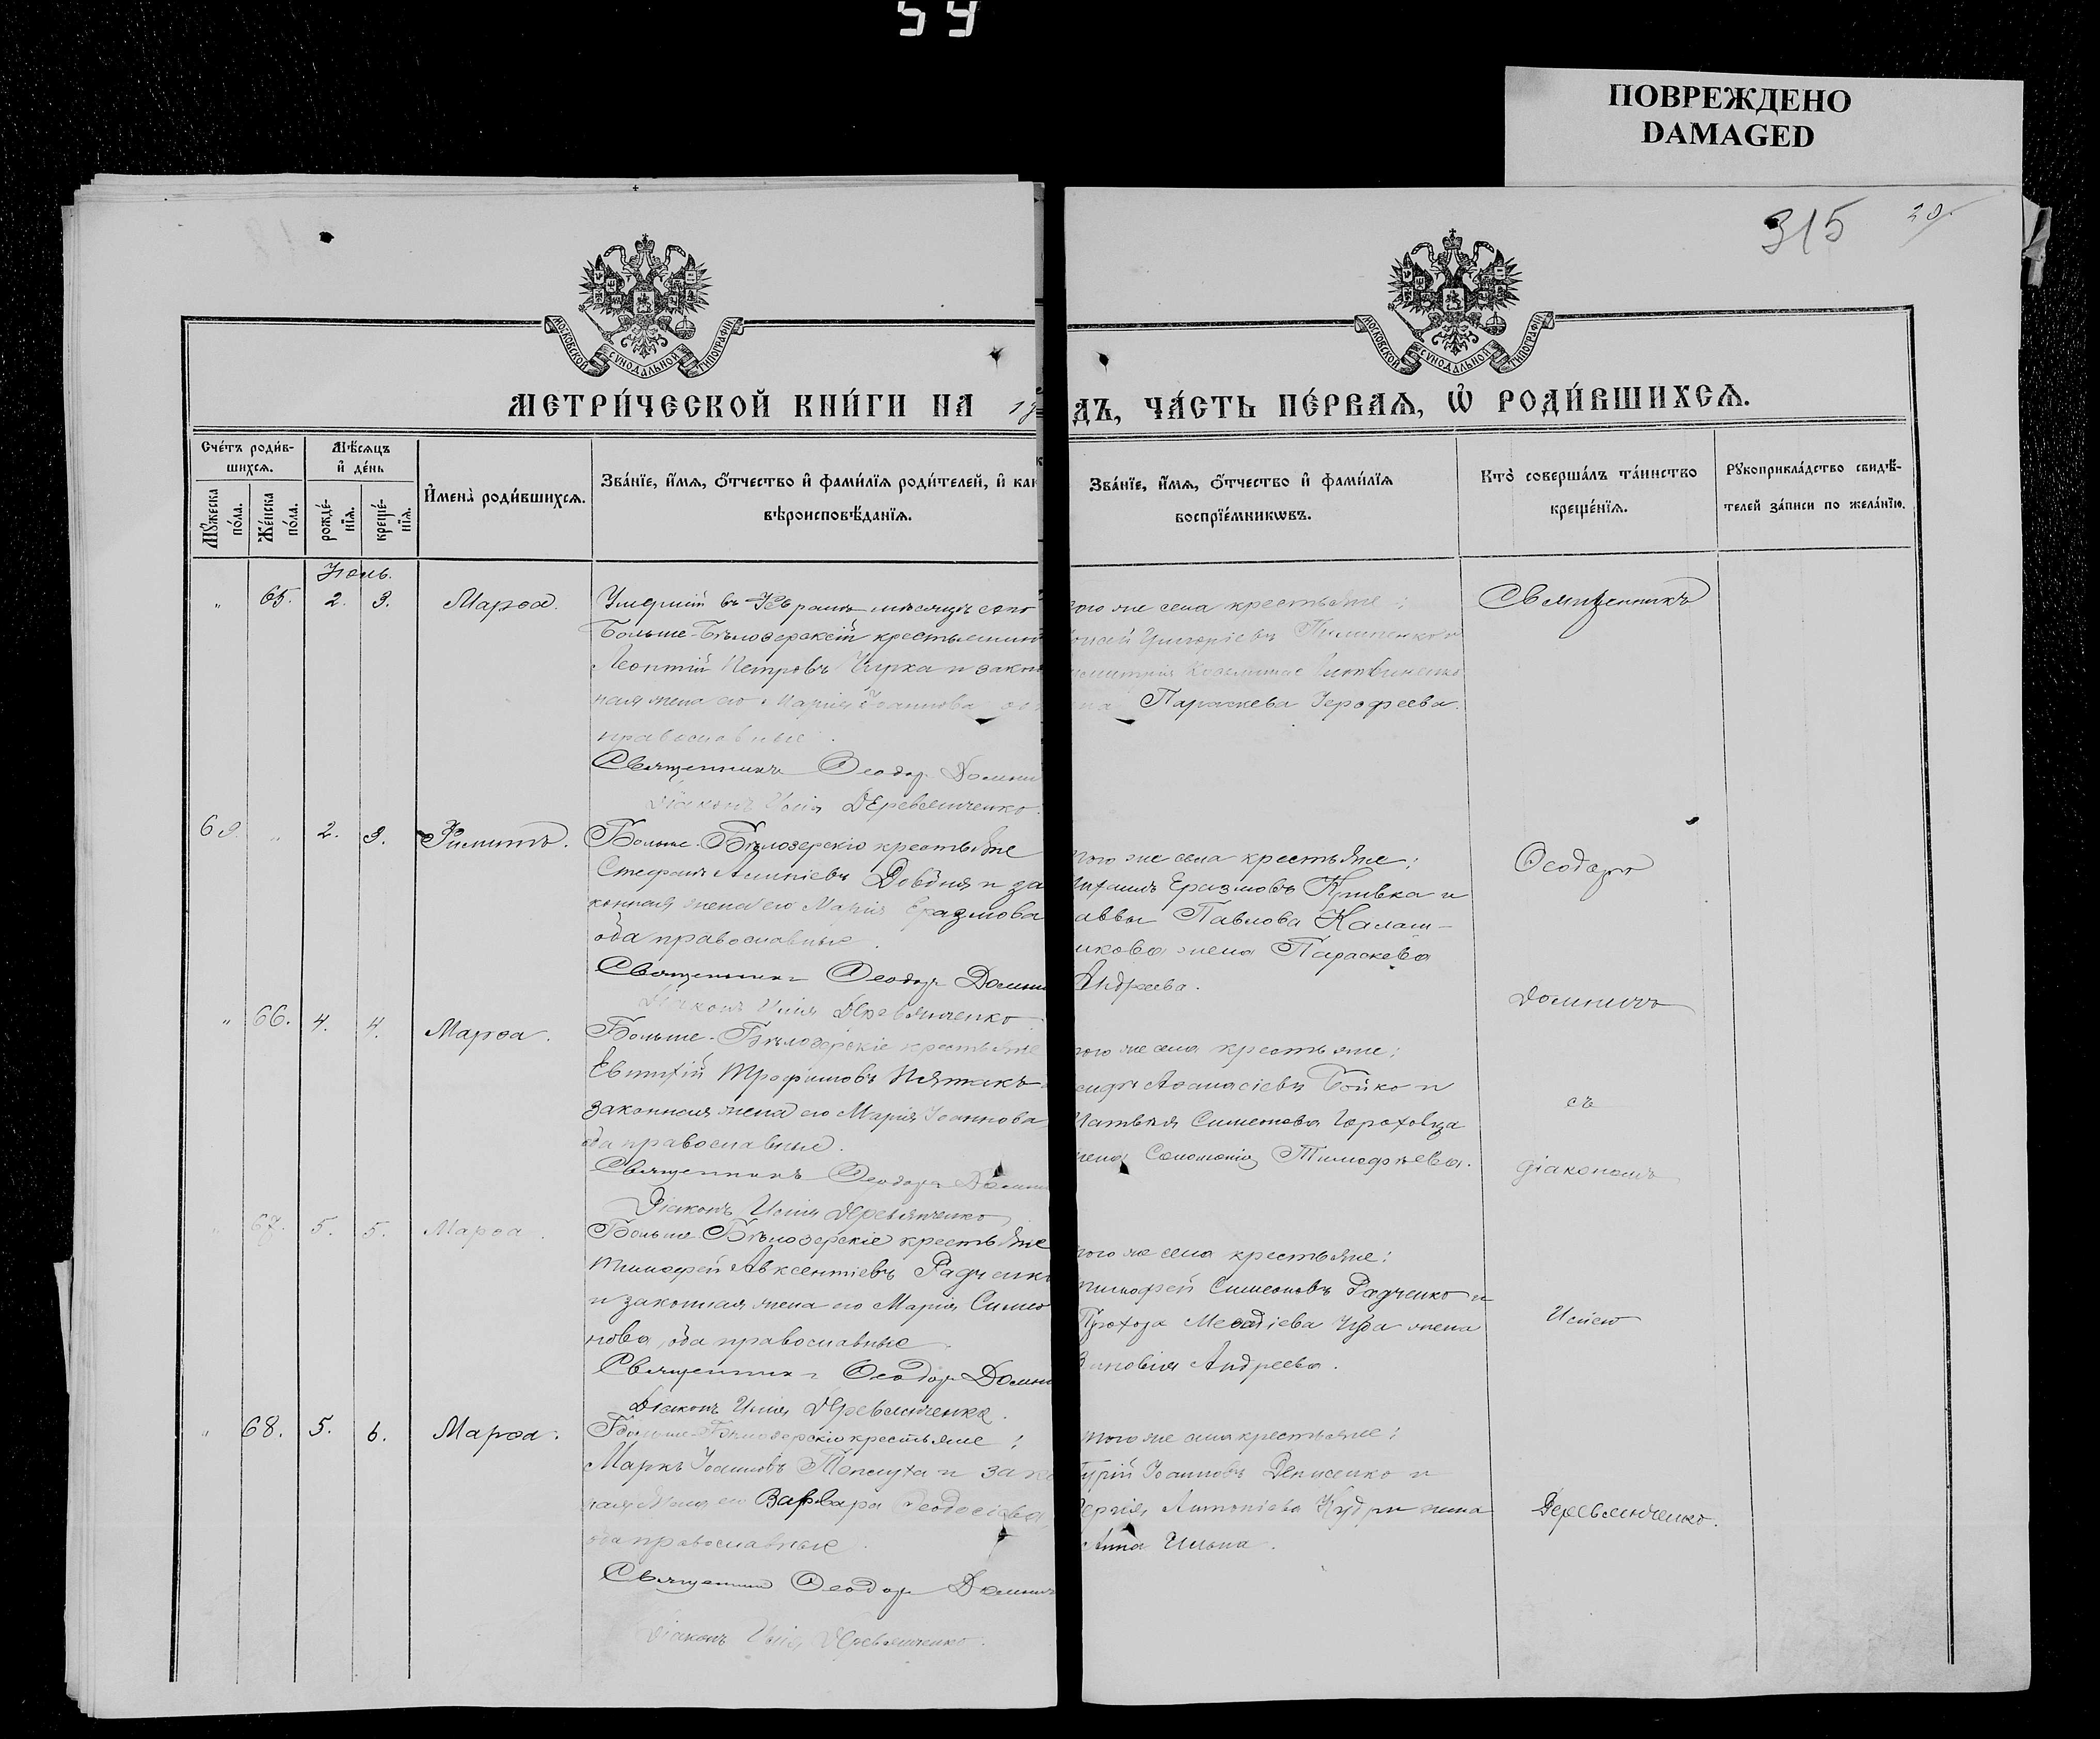 59
ПОВРЕЖДЕНО
DAMAGED
315 20
МОСКОВСКОЙ СѴНОДАЛЬНОЙ ТИПОГРАФІИ
МОСКОВСКОЙ СѴНОДАЛЬНОЙ ТИПОГРАФІИ
МЕТРИ́ЧЕСКОЙ КНИ́ГИ НА 19
ДЪ, ЧА́СТЬ ПЕ́РВАѦ, Ѡ҆ РОДИ́ВШИХСѦ.
Сче́тъ роди́в-
шихсѧ.
Мѣ́сѧцъ
и҆ де́нь
Мꙋ́жеска по́ла.
Же́нска по́ла.
рожде́-нїѧ.
креще́-нїѧ.
И҆мена̀ роди́вшихсѧ.
Зва́нїе, и҆́мѧ, о҆́тчество и҆ фами́лїѧ роди́телей, и҆ как
вѣроисповѣ́данїѧ.
Зва́нїе, и҆́мѧ, о҆́тчество и҆ фами́лїѧ
воспрїе́мникѡвъ.
Кто̀ соверша́лъ та́инство
креще́нїѧ.
Рꙋкоприкла́дство свидѣ́-
телей за́писи по жела́нїю.
Іюнь.
„ 65. 2. 3. Марѳа.
Умершій въ мѣсяцѣ сего
Больше-Бѣлозерскій крестьянин
Леонтій Петровъ Чирка и закон
ная жена его Марія Іоаннова
православные.
Священникъ Ѳеодор Домни
Діаконъ Илія Деревянченко.
того же села крестьяне:
Григоріевъ
Параскева Іерофеева.
Священникъ
„ 2. 3. Филиппъ.
Больше-Бѣлозерскіе крестьяне
Стефанъ Довбня и за
конная жена его Марія Еразмова
оба православные.
Священникъ Ѳеодоръ Домни
Діаконъ Илія Деревянченко
того же села крестьяне:
Еразмовъ Кривка и
аввы Павлова Калаш-
никова жена Параскева
Андреева.
Ѳеодоръ
Домничъ
„ 66. 4. 4. Марѳа.
Больше-Бѣлозерскіе крестьяне
Евтихій Трофимовъ Пятакъ
законная жена его Марія Іоаннова
оба православные.
Священникъ Ѳеодоръ Домни
Діаконъ Илія Деревянченко
того же села крестьяне:
Аѳанасіевъ Бойко и
Матвѣя Симеонова
жена Соломонія Тимофѣева.
съ
діакономъ
„ 67. 5. 5. Марѳа.
Больше-Бѣлозерскіе крестьяне
Тимоѳей Авксентіевъ Радченко
и законная жена его Марія Симео
нова, оба православные
Священникъ Ѳеодоръ Домни
Діаконъ Илія Деревянченко.
того же села крестьяне:
Тимофей Симеоновъ Радченко и
Прохора Меѳодіева жена
Зиновія Андреева.
Иліею
„ 68. 5. 6. Марѳа.
Больше-Бѣлозерскіе крестьяне:
Маркъ Іоанновъ и зако
ная жена его Варвара Ѳеодосіева,
оба православные.
Священник Ѳеодор Домнич
Діаконъ Илія Деревянченко.
того же села крестьяне:
Гурій Іоанновъ Денисенко и
Сергія Антоніева Кудри жена
Анна Ильина.
Деревянченко.